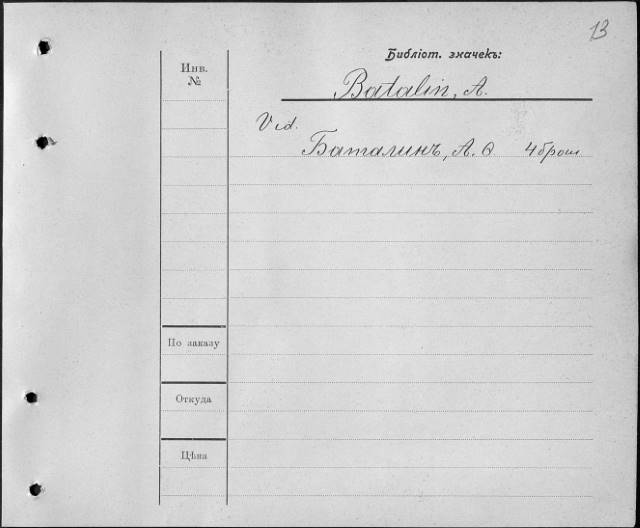 13
Библіот. значекъ:
Инв.
№
Batalin, A.
Vid.
Баталинъ, А. Ѳ 4 брош.
По заказу
Откуда
Цѣна